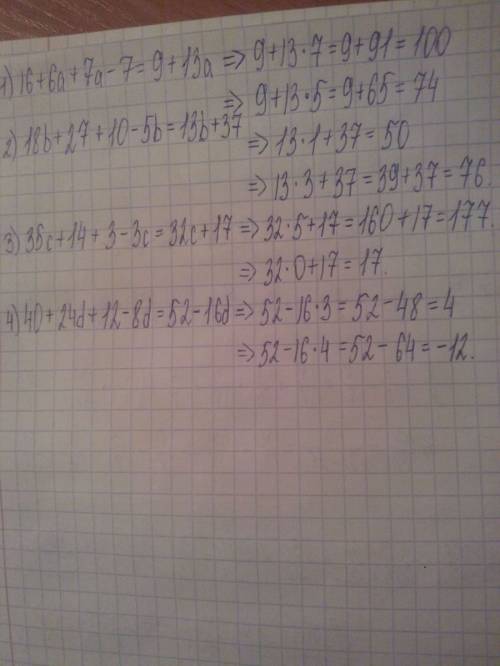 1) 16+6a+7a-7=9+13a => 9+13·7=9+91=100
=> 9+13·5=9+65=74
2) 18b+27+10-5b=13b+37 => 13·1+37=50
=> 13·3+37=39+37=76.
3) 35c+14+3-3c=32c+17 => 32·5+17=160+17=177.
=> 32·0+17=17.
4) 40+24d+12-8d=52-16d => 52-16·3=52-48=4
=> 52-16·4=52-64=-12.